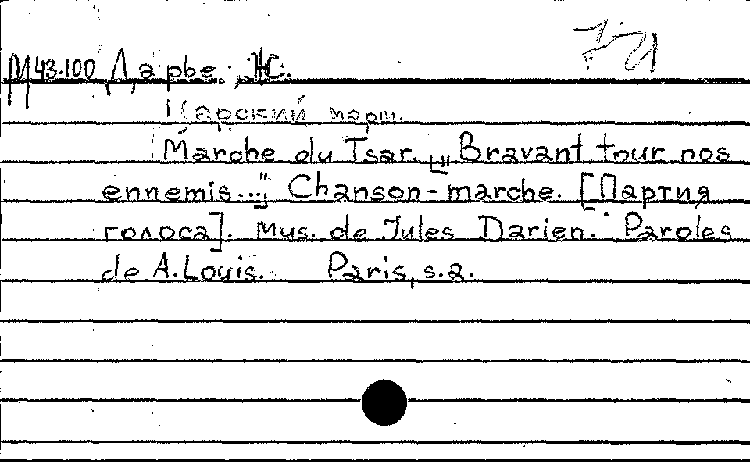 М43.100 Дарье, Ж.
Царский марш.
Marche du Tsar. „Bravant tour nos
ennemis..." Chanson-marche. [Партия
голоса]. Mus. de Jules Darien. Paroles
de A. Louis. Paris, s.a.